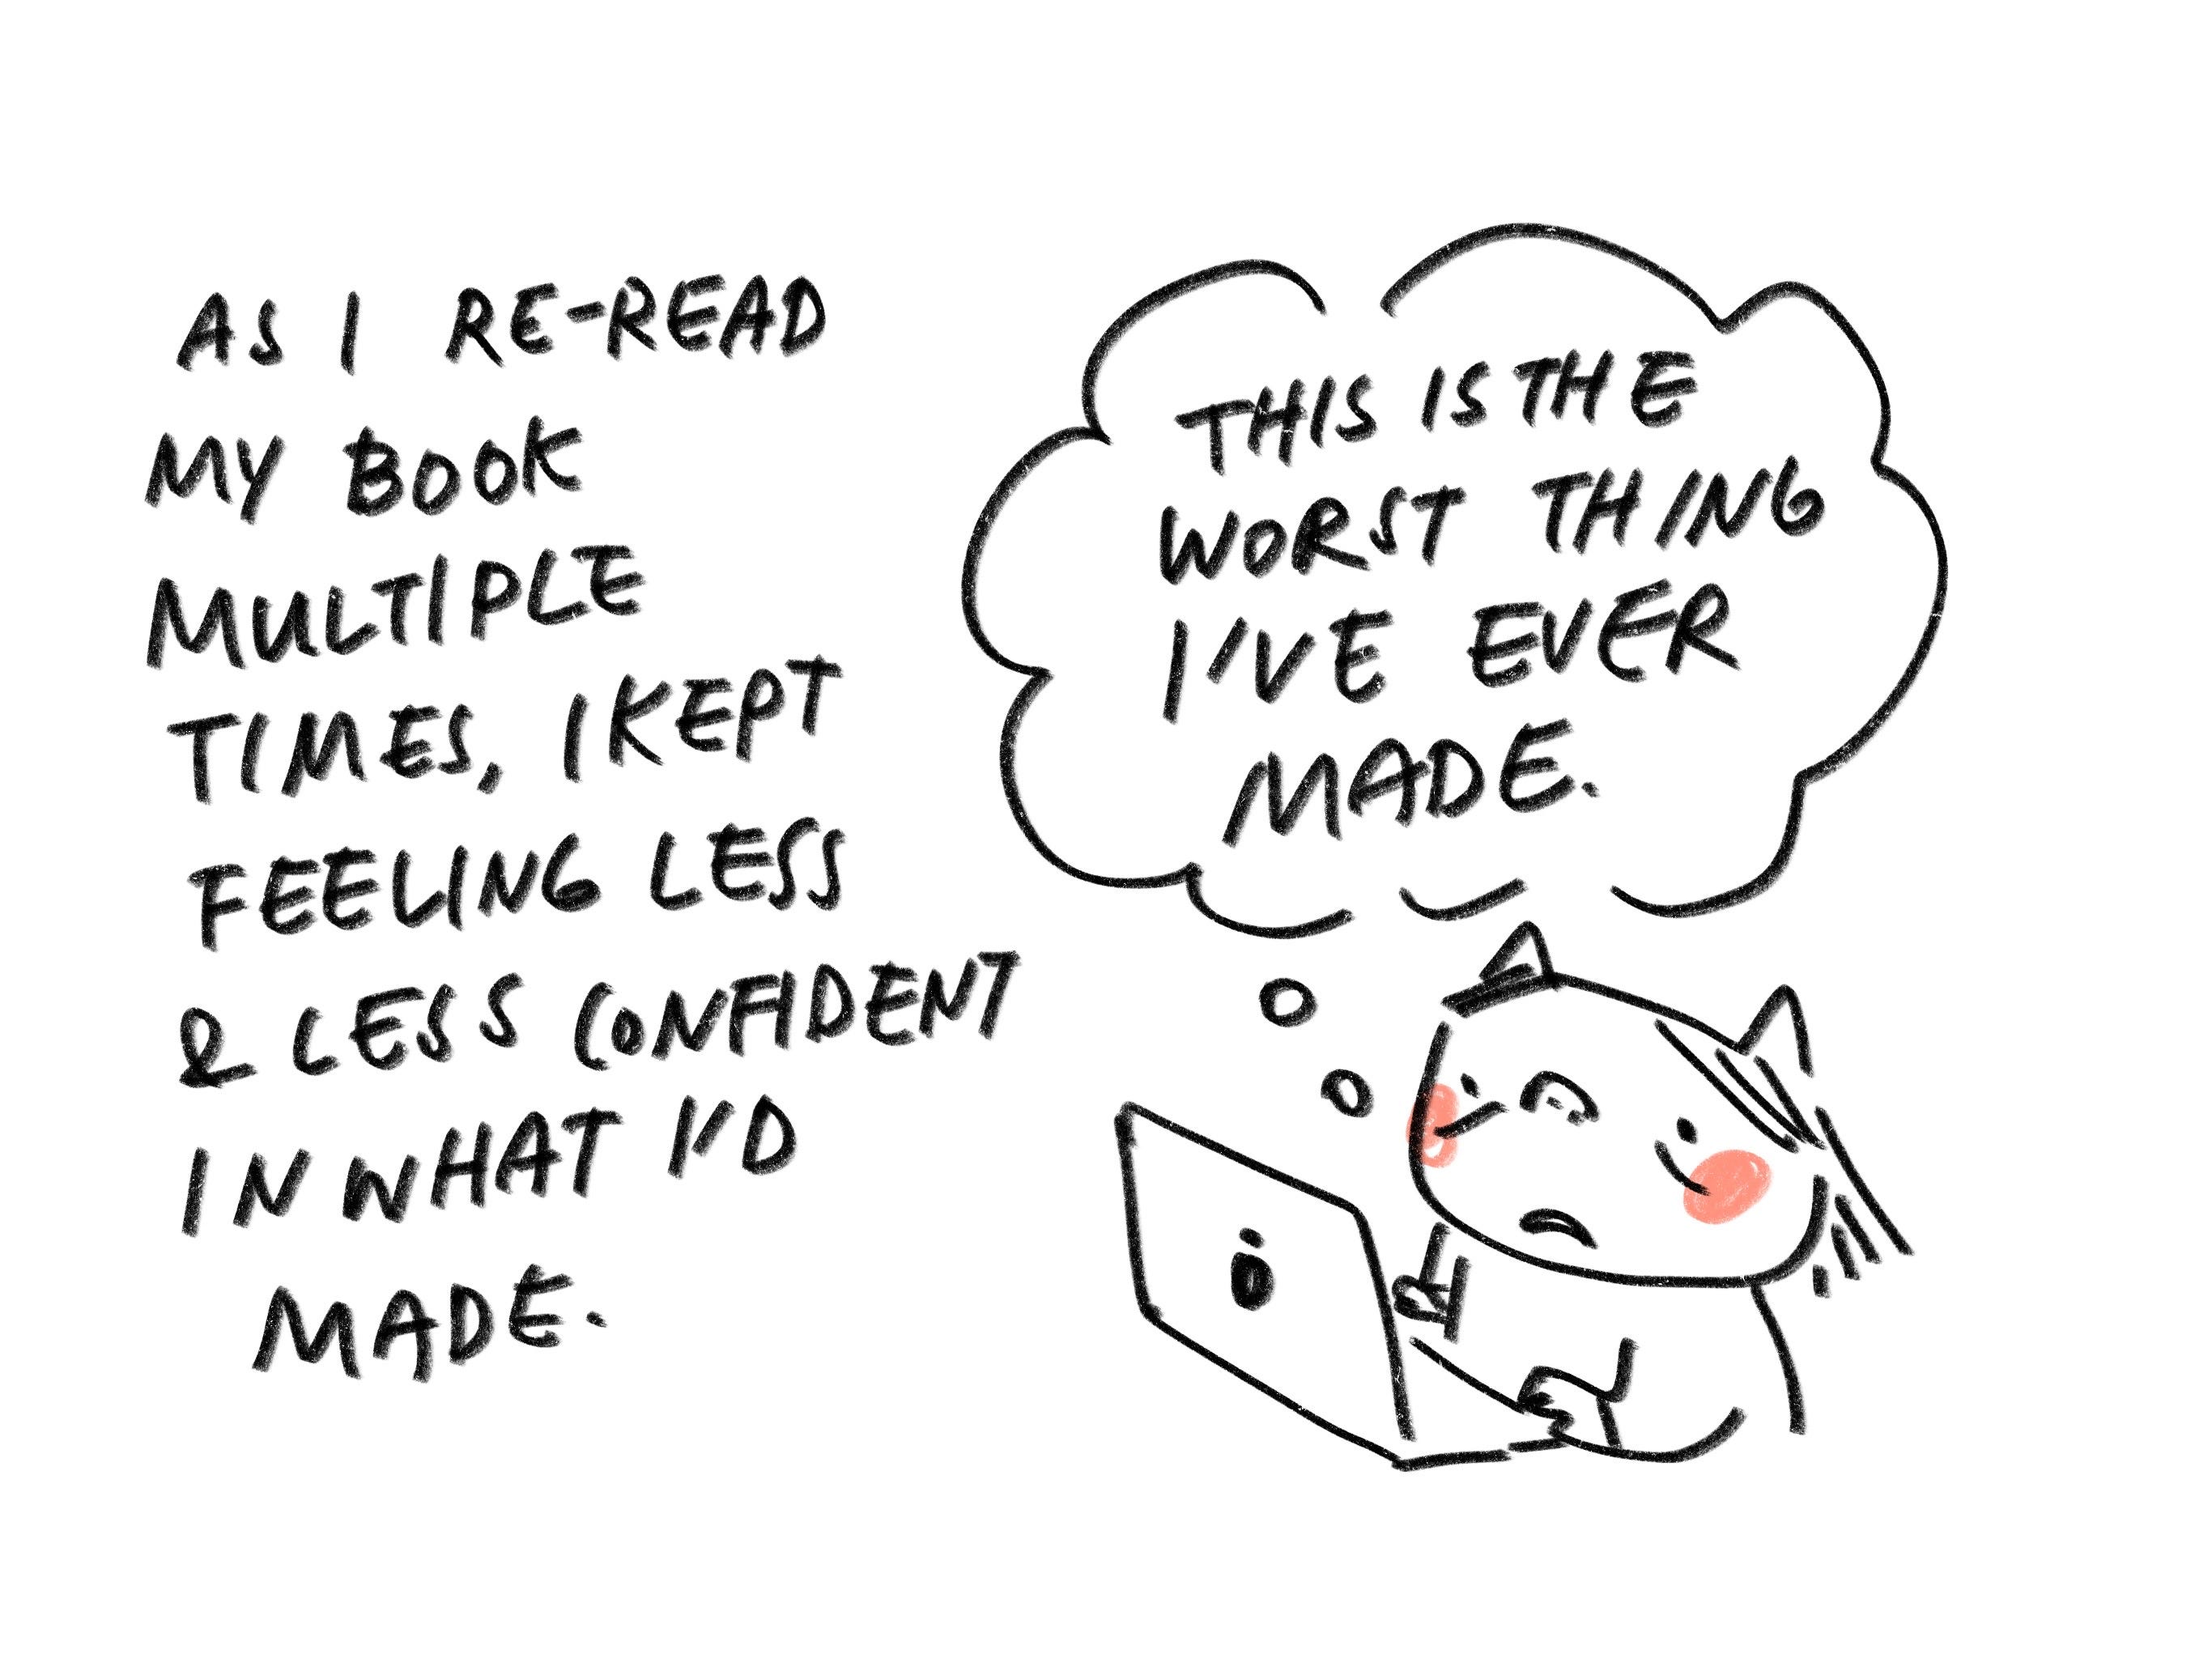 AS I RE-READ
MY BOOK
MULTIPLE
TIMES, I KEPT
FEELING LESS
& LESS CONFIDENT
IN WHAT I'D
MADE.
THIS IS THE
WORST THING
I'VE EVER
MADE.